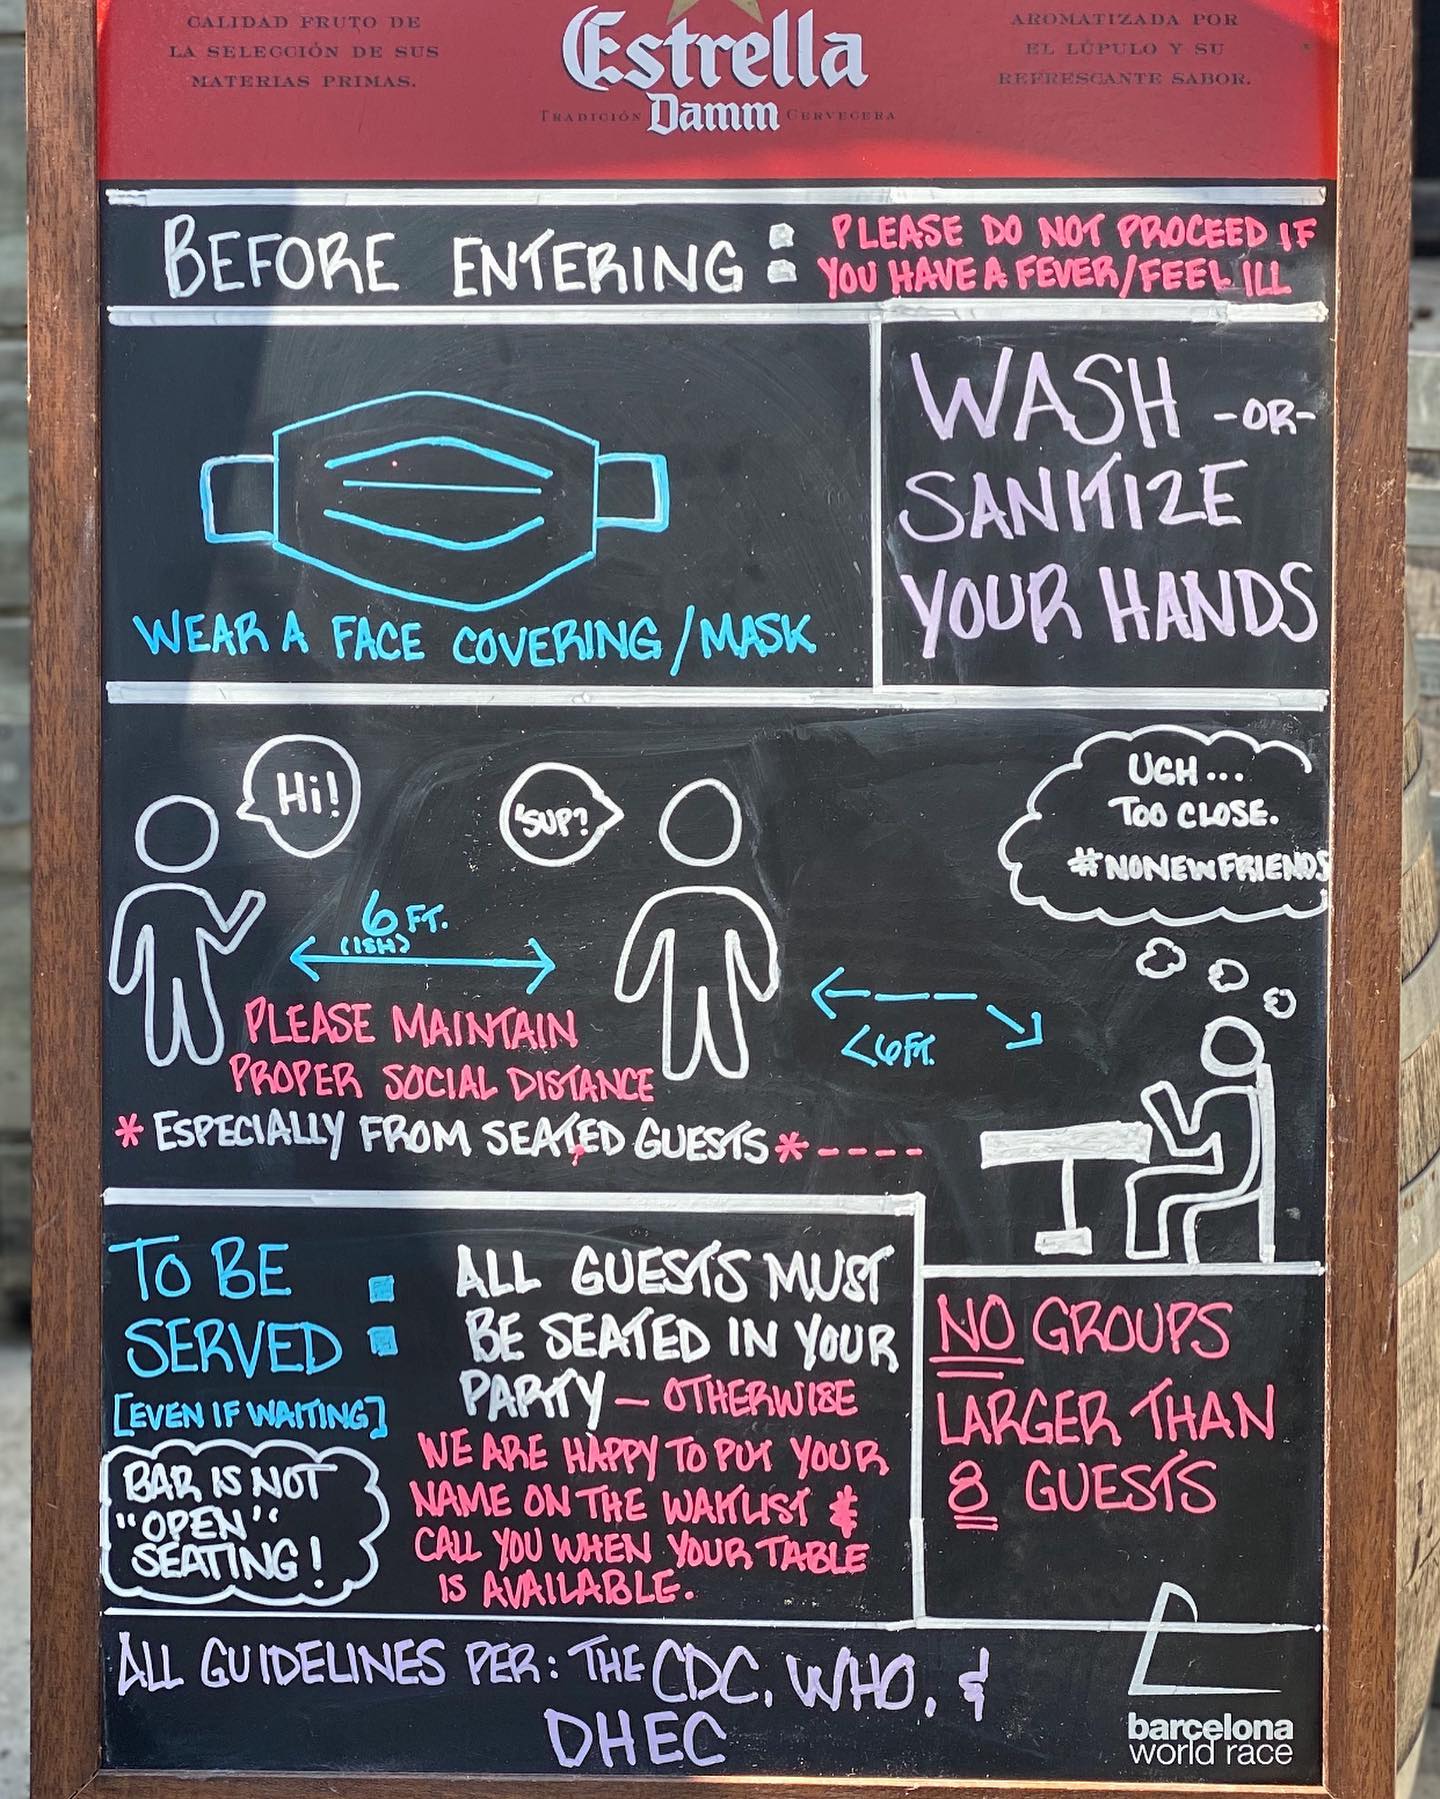 CALIDAD FRUTO DE
LA SELECCIÓN DE SUS
MATERIAS PRIMAS.
Estrella
Damm
TRADICIÓN CERVECERA
AROMATIZADA POR
EL LÚPULO Y SU
REFRESCANTE SABOR.
BEFORE ENTERING:
PLEASE DO NOT PROCEED IF
YOU HAVE A FEVER/FEEL ILL
WEAR A FACE COVERING/MASK
WASH -OR-
SANITIZE
YOUR HANDS
Hi!
'SUP?
UGH...
TOO CLOSE.
#NONEWFRIENDS
6 FT.
(ISH)
<6FT.
PLEASE MAINTAIN
PROPER SOCIAL DISTANCE
* ESPECIALLY FROM SEATED GUESTS *----
TO BE
SERVED:
[EVEN IF WAITING]
BAR IS NOT
"OPEN"
SEATING!
ALL GUESTS MUST
BE SEATED IN YOUR
PARTY - OTHERWISE
WE ARE HAPPY TO PUT YOUR
NAME ON THE WAITLIST &
CALL YOU WHEN YOUR TABLE
IS AVAILABLE.
NO GROUPS
LARGER THAN
8 GUESTS
ALL GUIDELINES PER: THE CDC, WHO, &
DHEC
barcelona
world race